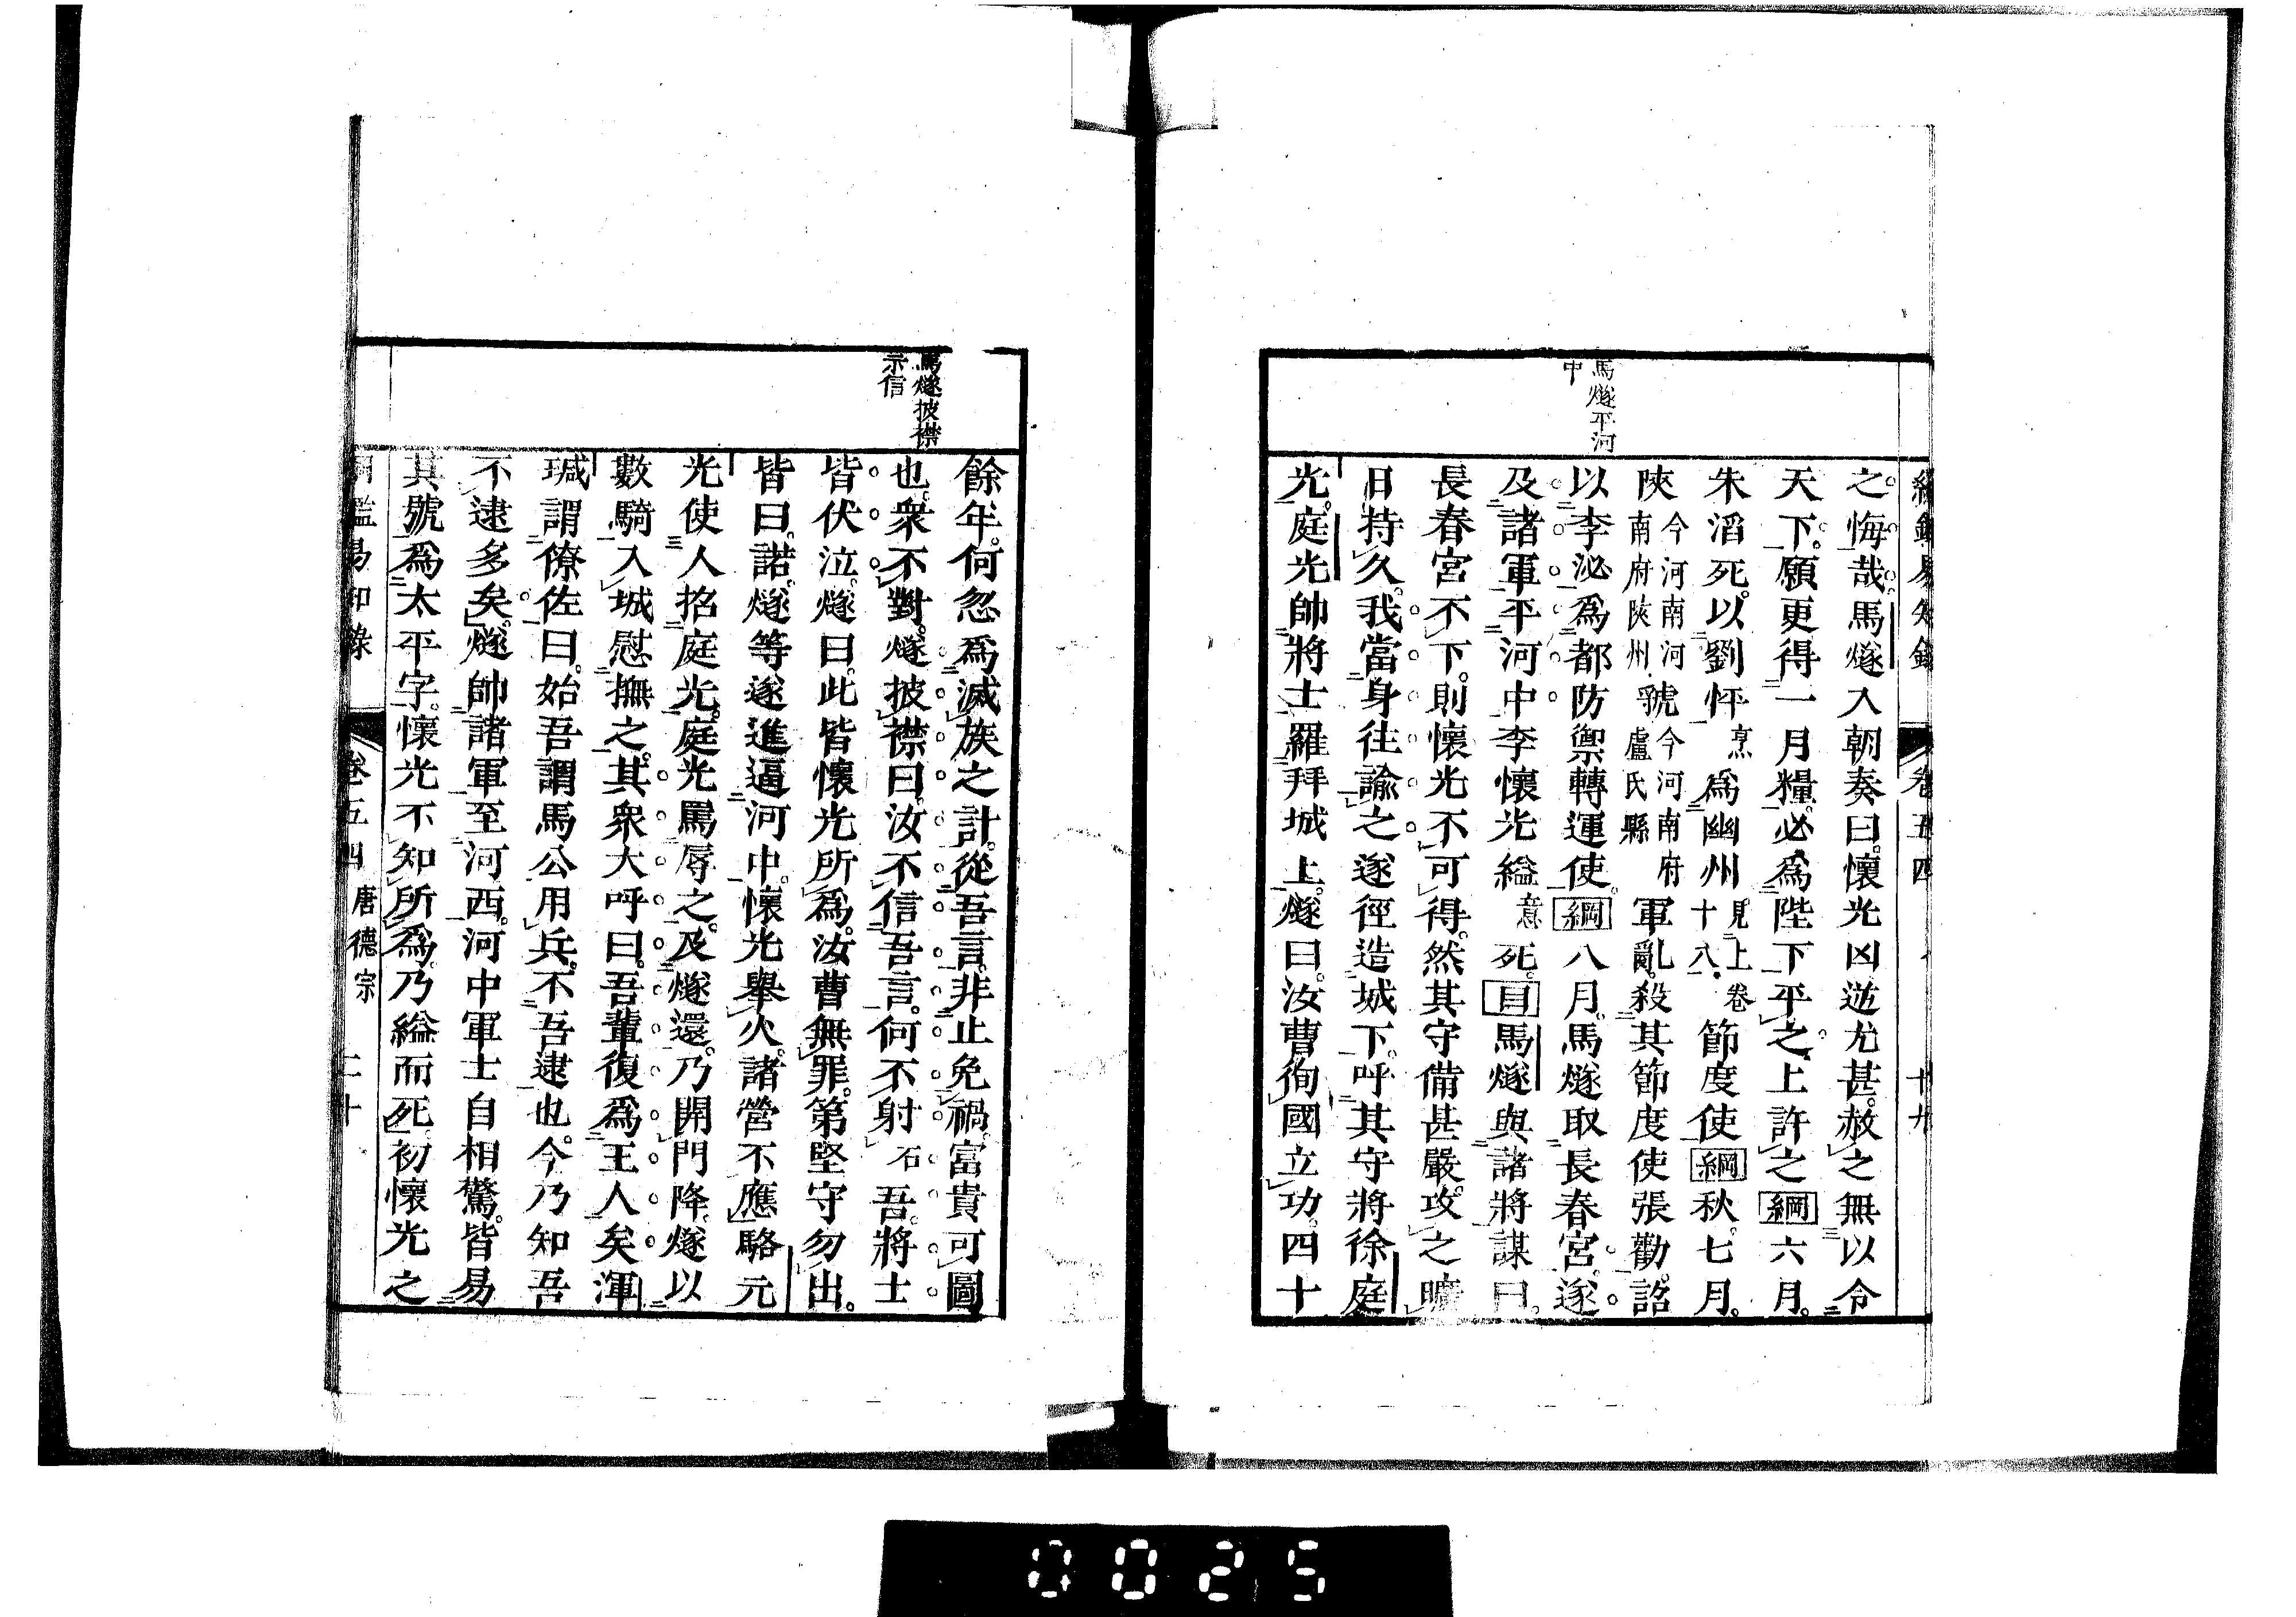 綱鑑易知錄 卷五四 十九
馬燧平河
中
之悔哉馬燧入朝奏曰懷光凶逆尤甚赦之無以令
天下願更得一月糧必爲陛下平之上許之綱六月
朱滔死以劉怦烹爲幽州見上卷十八節度使綱秋七月
陝今河南河南府陝州虢今河南府盧氏縣軍亂殺其節度使張勸詔
以李泌爲都防禦轉運使綱八月馬燧取長春宮遂
及諸軍平河中李懷光縊意死目馬燧與諸將謀曰
長春宮不下則懷光不可得然其守備甚嚴攻之曠
日持久我當身往諭之遂徑造城下呼其守將徐庭
光庭光帥將士羅拜城上燧曰汝曹徇國立功四十
馬燧披襟
示信
餘年何忽爲滅族之計從吾言非止免禍富貴可圖
也衆不對燧披襟曰汝不信吾言何不射石吾將士
皆伏泣燧曰此皆懷光所爲汝曹無罪第堅守勿出
皆曰諾燧等遂進逼河中懷光舉火諸營不應駱元
光使人招庭光庭光罵辱之及燧還乃開門降燧以
數騎入城慰撫之其衆大呼曰吾輩復爲王人矣渾
瑊謂僚佐曰始吾謂馬公用兵不吾逮也今乃知吾
不逮多矣燧帥諸軍至河西河中軍士自相驚皆易
其號爲太平字懷光不知所爲乃縊而死初懷光之
綱鑑易知錄 卷五四 唐德宗 二十
0025